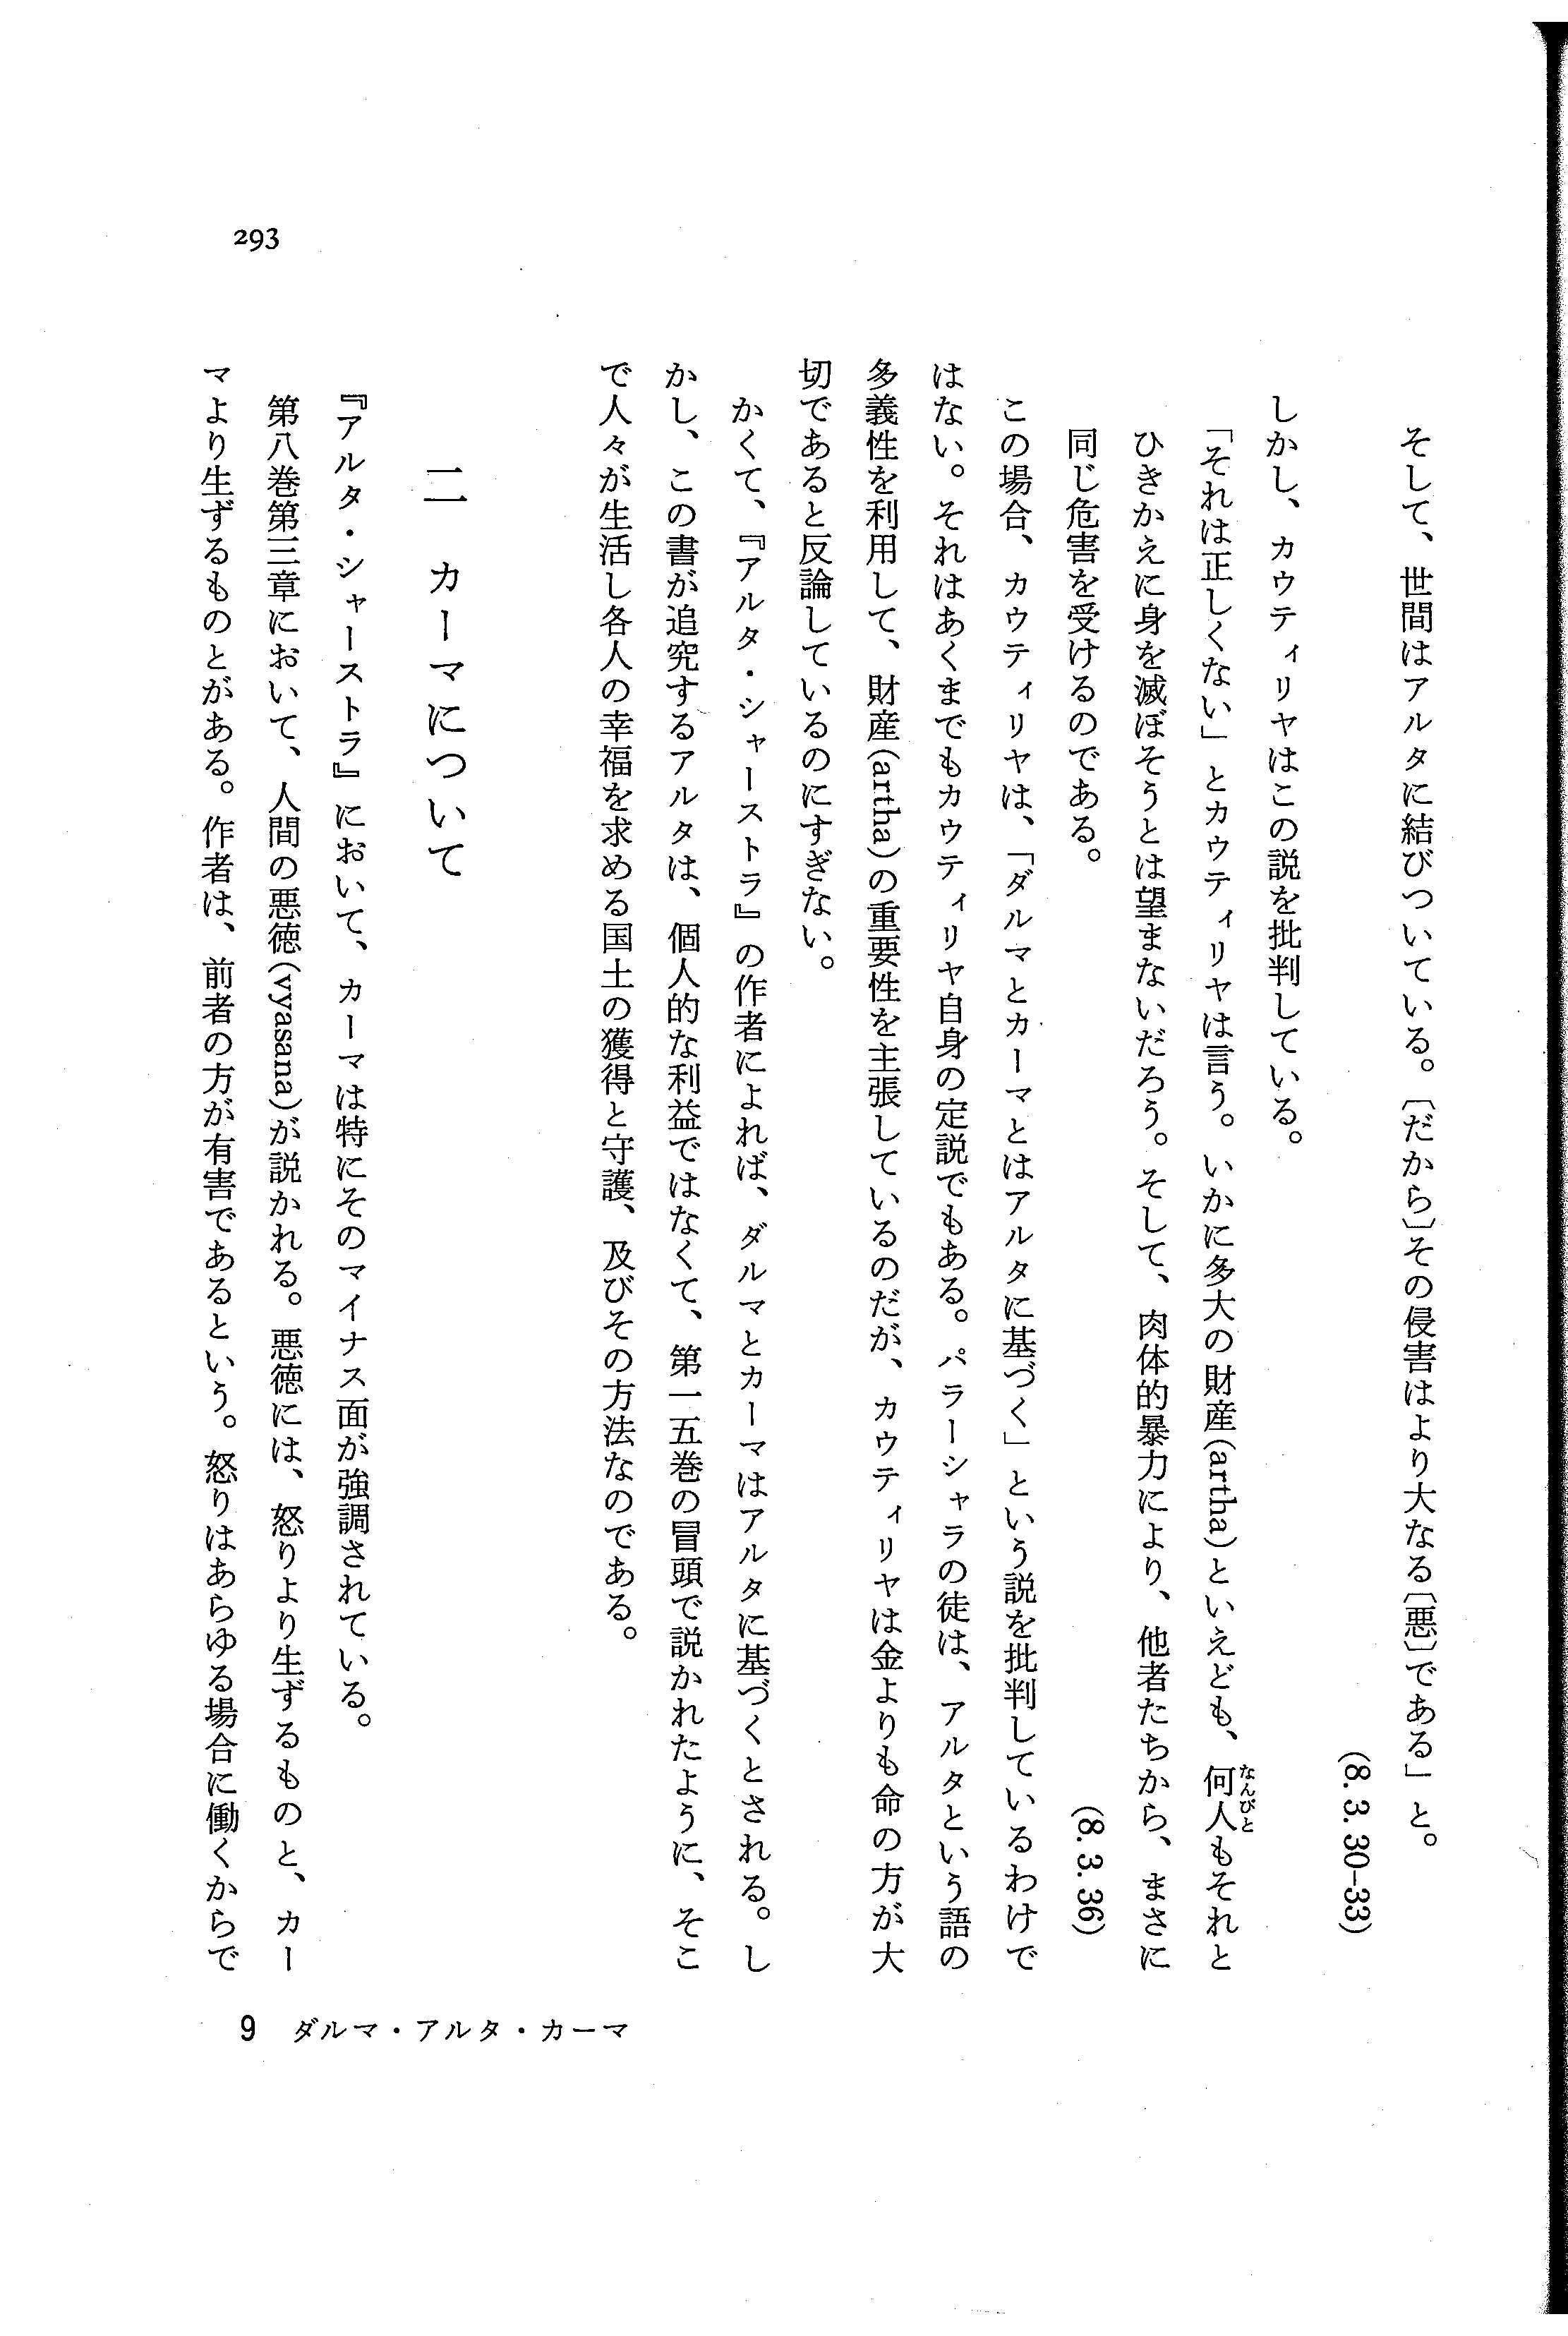 そして、世間はアルタに結びついている。〔だから〕その侵害はより大なる〔悪〕である」と。
(8. 3. 30-33)
しかし、カウティリヤはこの説を批判している。
「それは正しくない」とカウティリヤは言う。いかに多大の財産(artha)といえども、何人もそれと
なんびと
ひきかえに身を滅ぼそうとは望まないだろう。そして、肉体的暴力により、他者たちから、まさに
同じ危害を受けるのである。
(8. 3. 36)
この場合、カウティリヤは、「ダルマとカーマとはアルタに基づく」という説を批判しているわけで
はない。それはあくまでもカウティリヤ自身の定説でもある。パラーシャラの徒は、アルタという語の
多義性を利用して、財産(artha)の重要性を主張しているのだが、カウティリヤは金よりも命の方が大
切であると反論しているのにすぎない。
かくて、『アルタ・シャーストラ』の作者によれば、ダルマとカーマはアルタに基づくとされる。し
かし、この書が追究するアルタは、個人的な利益ではなくて、第一五巻の冒頭で説かれたように、そこ
で人々が生活し各人の幸福を求める国土の獲得と守護、及びその方法なのである。
二 カーマについて
『アルタ・シャーストラ』において、カーマは特にそのマイナス面が強調されている。
第八巻第三章において、人間の悪徳(vyasana)が説かれる。悪徳には、怒りより生ずるものと、カー
マより生ずるものとがある。作者は、前者の方が有害であるという。怒りはあらゆる場合に働くからで
293
9 ダルマ・アルタ・カーマ